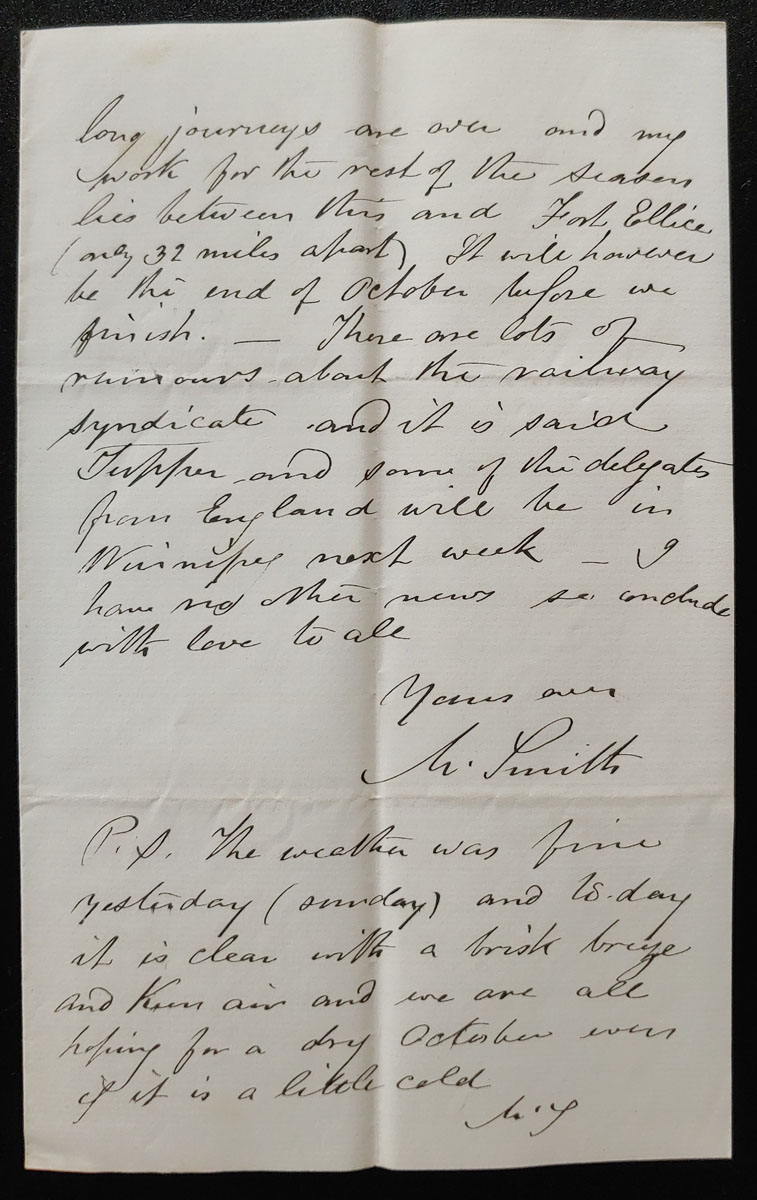 long journeys are over and my
work for the rest of the season
lies between this and Fort Ellice
(only 32 miles apart) It will however
be the end of October before we
finish. — There are lots of
rumours about the railway
syndicate and it is said
Tupper and some of the delegates
from England will be in
Winnipeg next week — I
have no other news so conclude
with love to all
Yours ever
M. Smith
P.S. The weather was fine
yesterday (sunday) and to-day
it is clear with a brisk breeze
and keen air and we are all
hoping for a dry October even
if it is a little cold
M.S